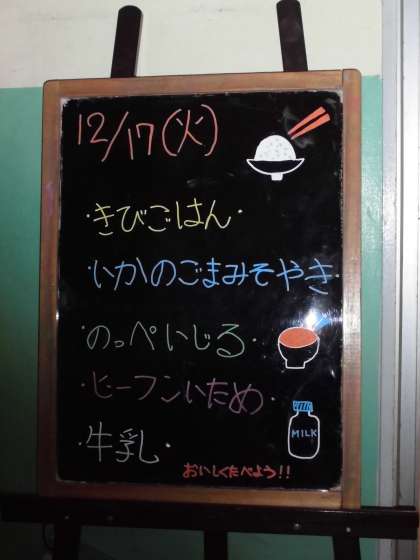 12/17(火)
・きびごはん・
・いかのごまみそやき・
・のっぺいじる・
・ビーフンいため・
・牛乳・
MILK
おいしくたべよう!!